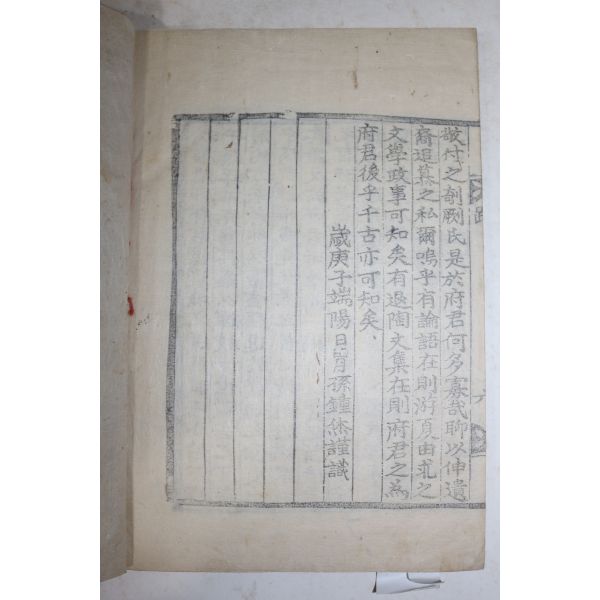 敬付之剞劂氏是於府君何多寡哉聊以伸遺
裔追慕之私爾嗚乎有論語在則游夏由求之
文學政事可知矣有退陶文集在則府君之為
府君後乎千古亦可知矣
歲庚子端陽日胄孫鍾烋謹識
跋
六